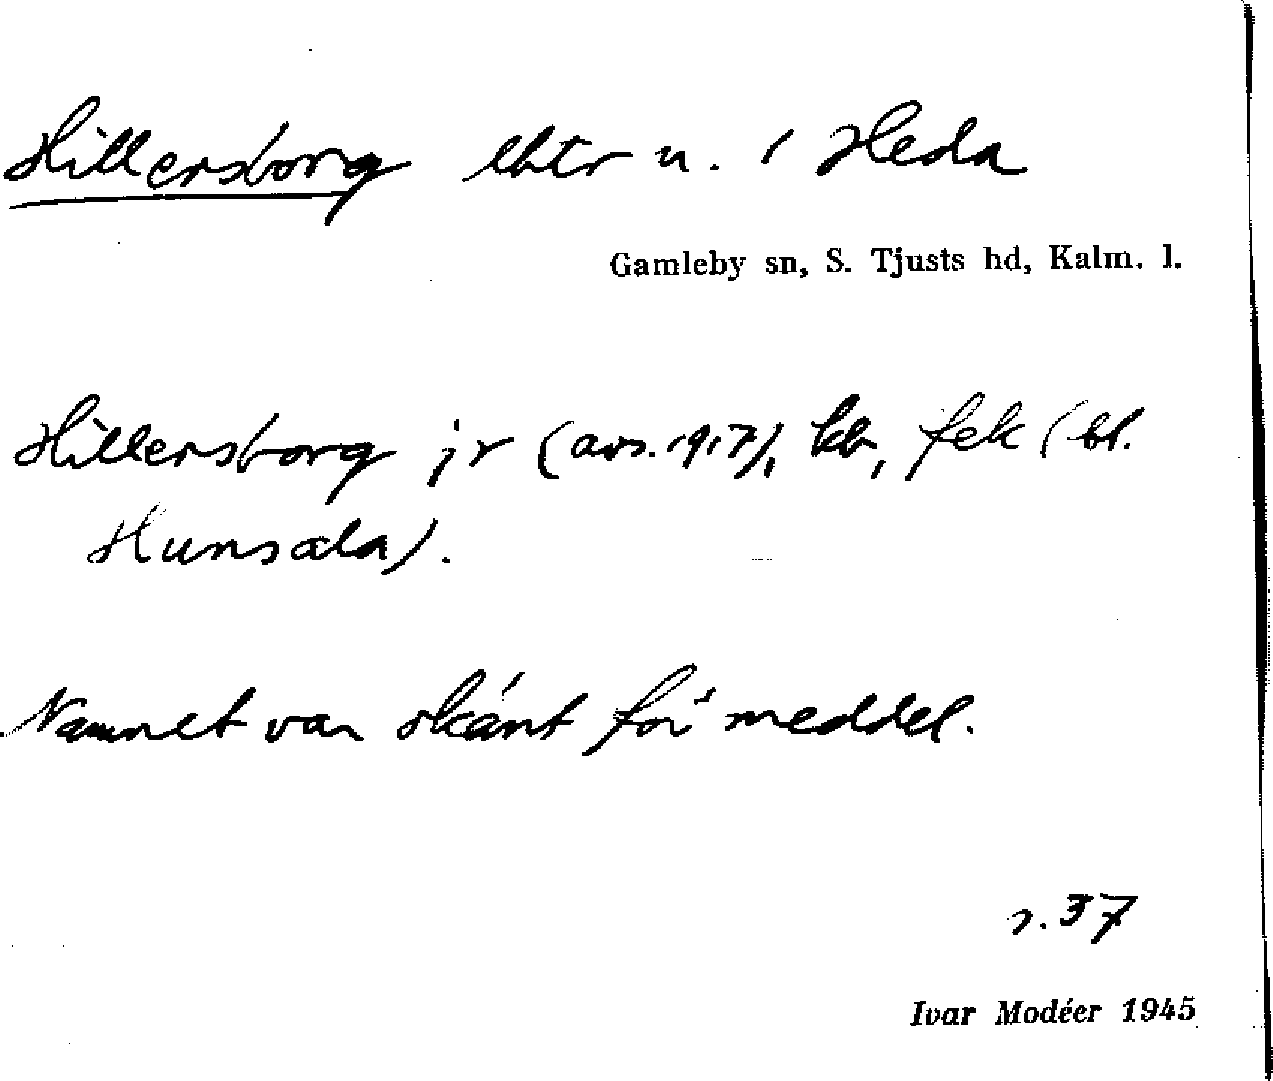 Hillersborg lhtr u. / Heda
Gamleby sn, S. Tjusts hd, Kalm. l.
Hillersborg jr (avs. 1917), kb, fek (bl.
Hunsala).
Namnet var okänt för meddel.
s. 37
Ivar Modéer 1945